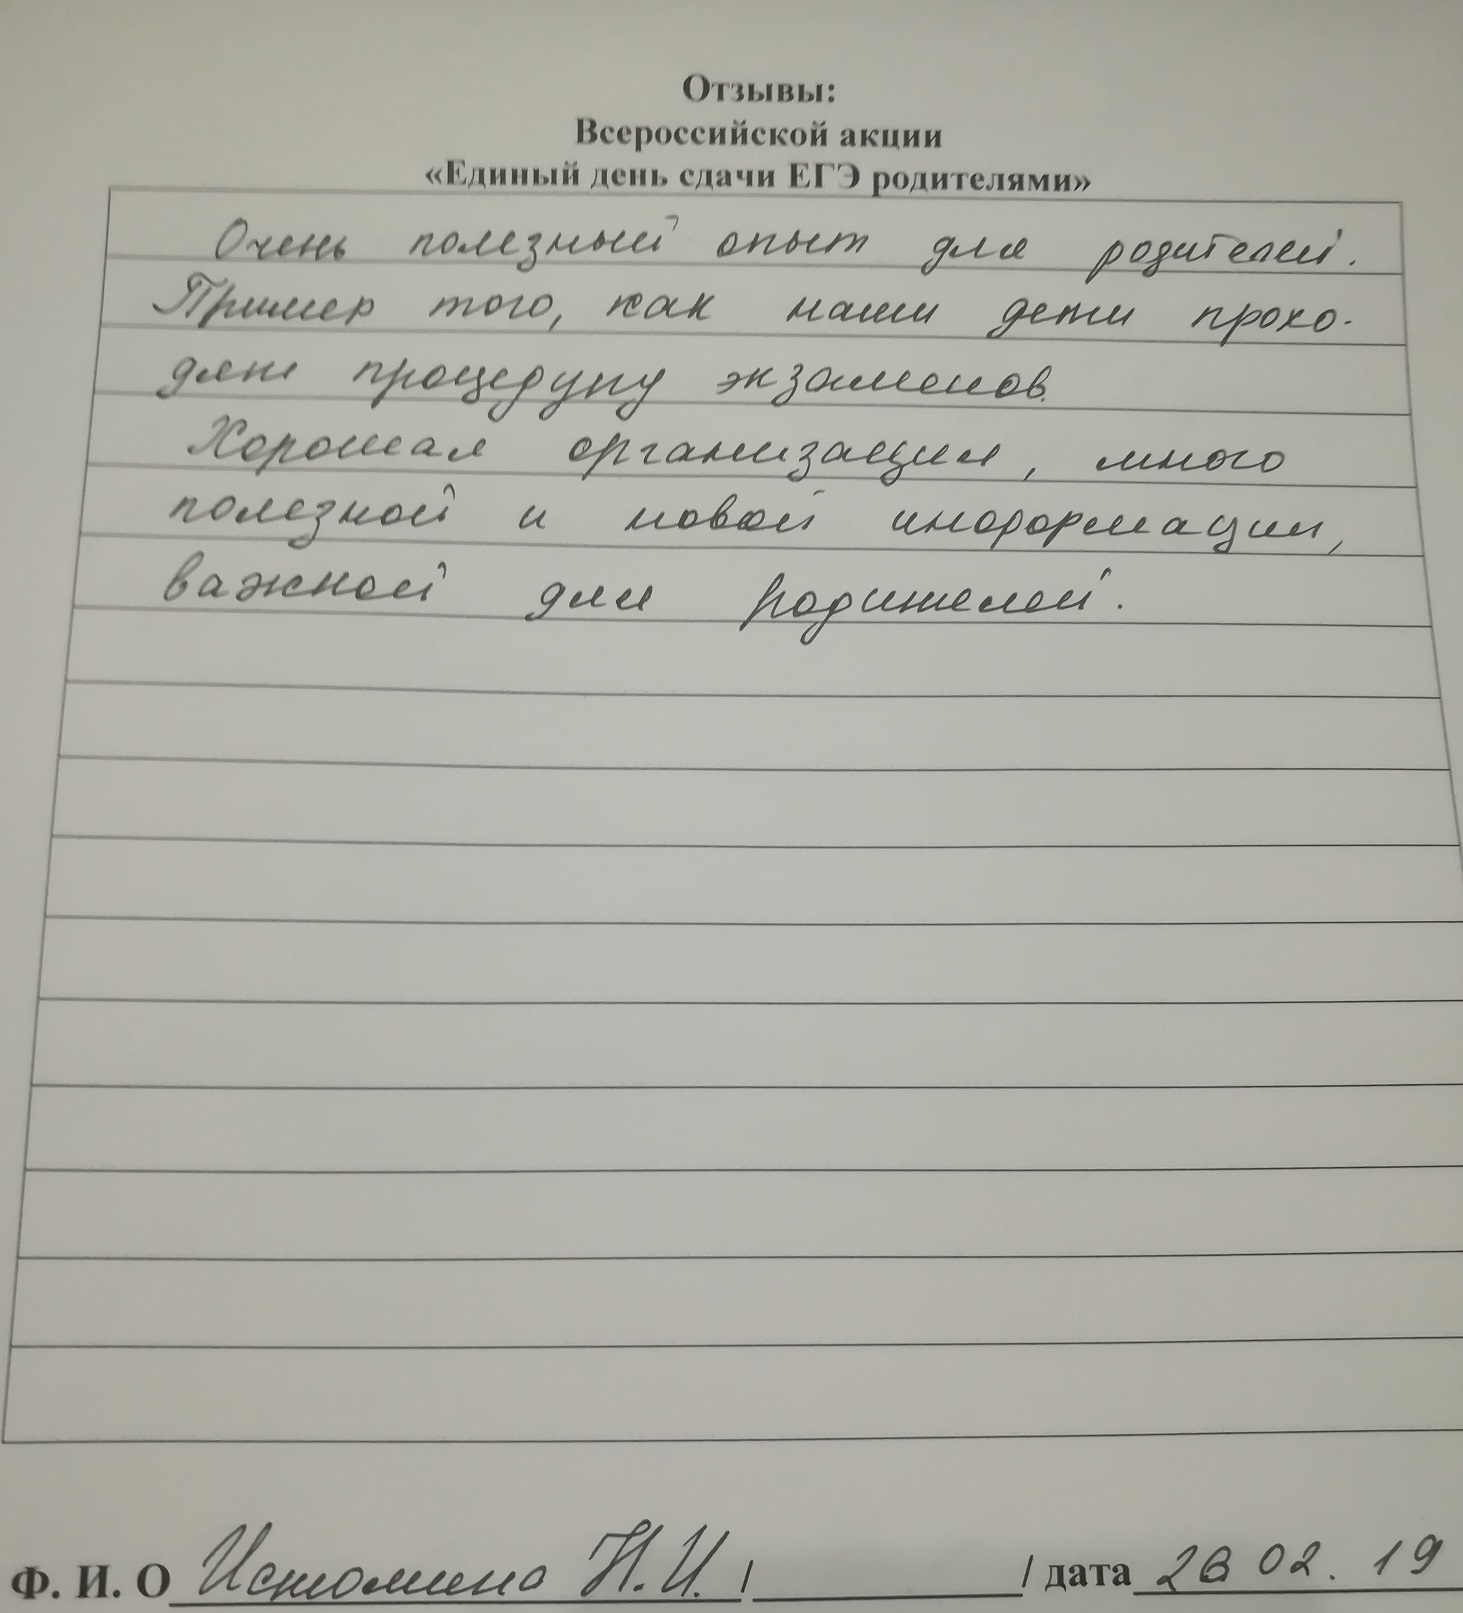 Отзывы:
Всероссийской акции
«Единый день сдачи ЕГЭ родителями»
Очень полезный опыт для родителей.
Пример того, как наши дети прохо-
дят процедуру экзаменов.
Хорошая организация, много
полезной и новой информации,
важной для родителей.
Ф. И. О Истомина Н.И. / / дата 02. 19